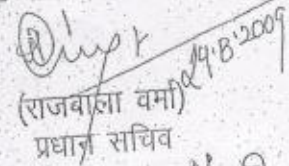 29.8.2009
(राजबाला वर्मा)
प्रधान सचिव